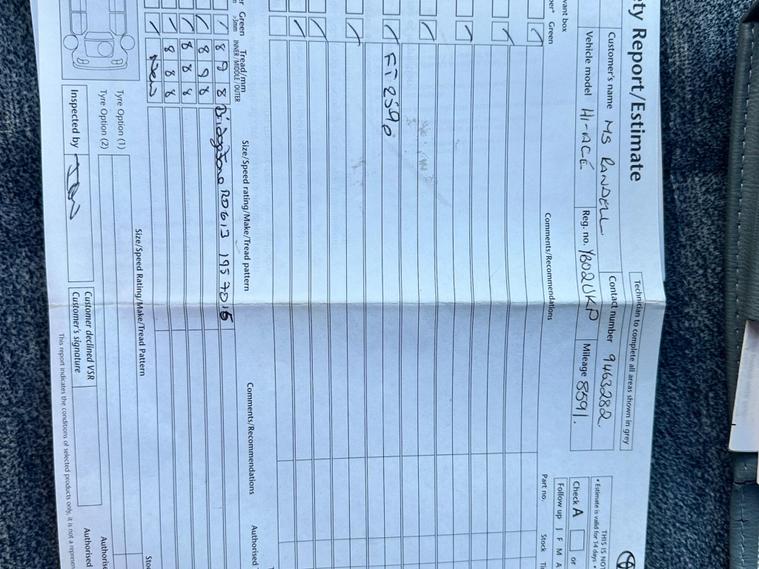 ety Report/Estimate
Technician to complete all areas shown in grey
Customer's name MS RANDELL Contact number 9463282
Vehicle model HI-ACE Reg. no. YB02UKP Mileage 8591.
THIS IS NO
• Estimate is valid for 14 days. •
Check A or
Follow up J F M A
vant box
Green Comments/Recommendations Part no. Stock
Green Tread/mm Size/Speed rating/Make/Tread pattern Comments/Recommendations Authorised
INNER/MIDDLE/OUTER
8 9 8 Bridgestone RD613 195 70 15
8 9 8
8 8 8
8 8 8
New
Size/Speed Rating/Make/Tread Pattern
Tyre Option (1)
Tyre Option (2)
Inspected by
Customer declined VSR
Customer's signature
Authorised
This report indicates the conditions of selected products only, it is not a